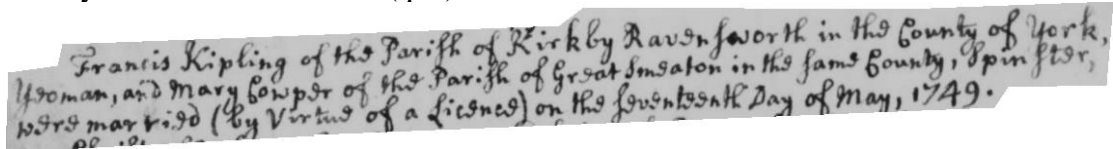 Francis Kipling of the Parish of Kirkby Ravensworth in the County of York,
Yeoman, and Mary Cowper of the Parish of Great Smeaton in the same County, Spinster,
were married (by Virtue of a Licence) on the seventeenth Day of May, 1749.